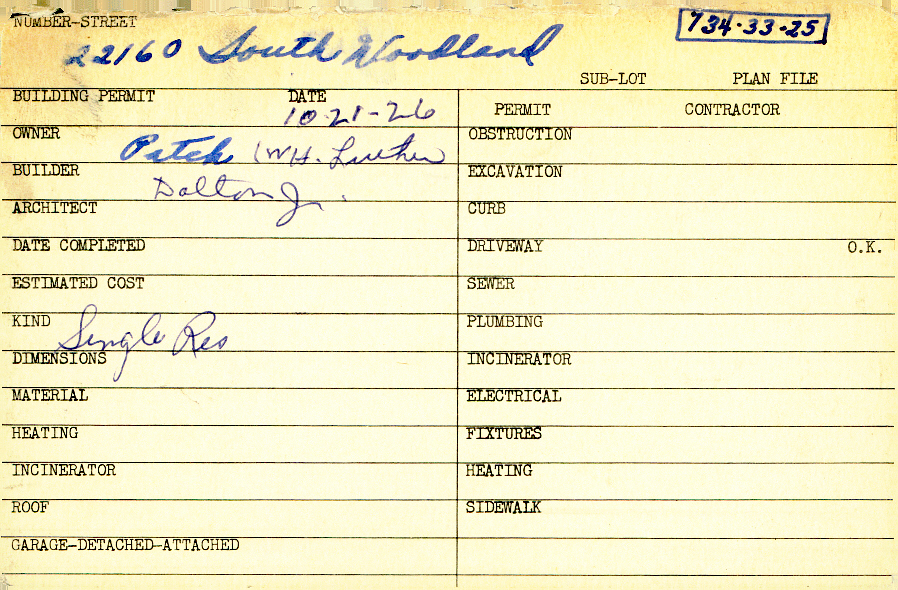 NUMBER-STREET
734·33·25
22160 South Woodland
SUB-LOT PLAN FILE
BUILDING PERMIT DATE 10-21-26
PERMIT CONTRACTOR
OWNER Patch (WH. Luther
OBSTRUCTION
BUILDER Dalton Jr.
EXCAVATION
ARCHITECT
CURB
DATE COMPLETED
DRIVEWAY O.K.
ESTIMATED COST
SEWER
KIND Single Res
PLUMBING
DIMENSIONS
INCINERATOR
MATERIAL
ELECTRICAL
HEATING
FIXTURES
INCINERATOR
HEATING
ROOF
SIDEWALK
GARAGE-DETACHED-ATTACHED